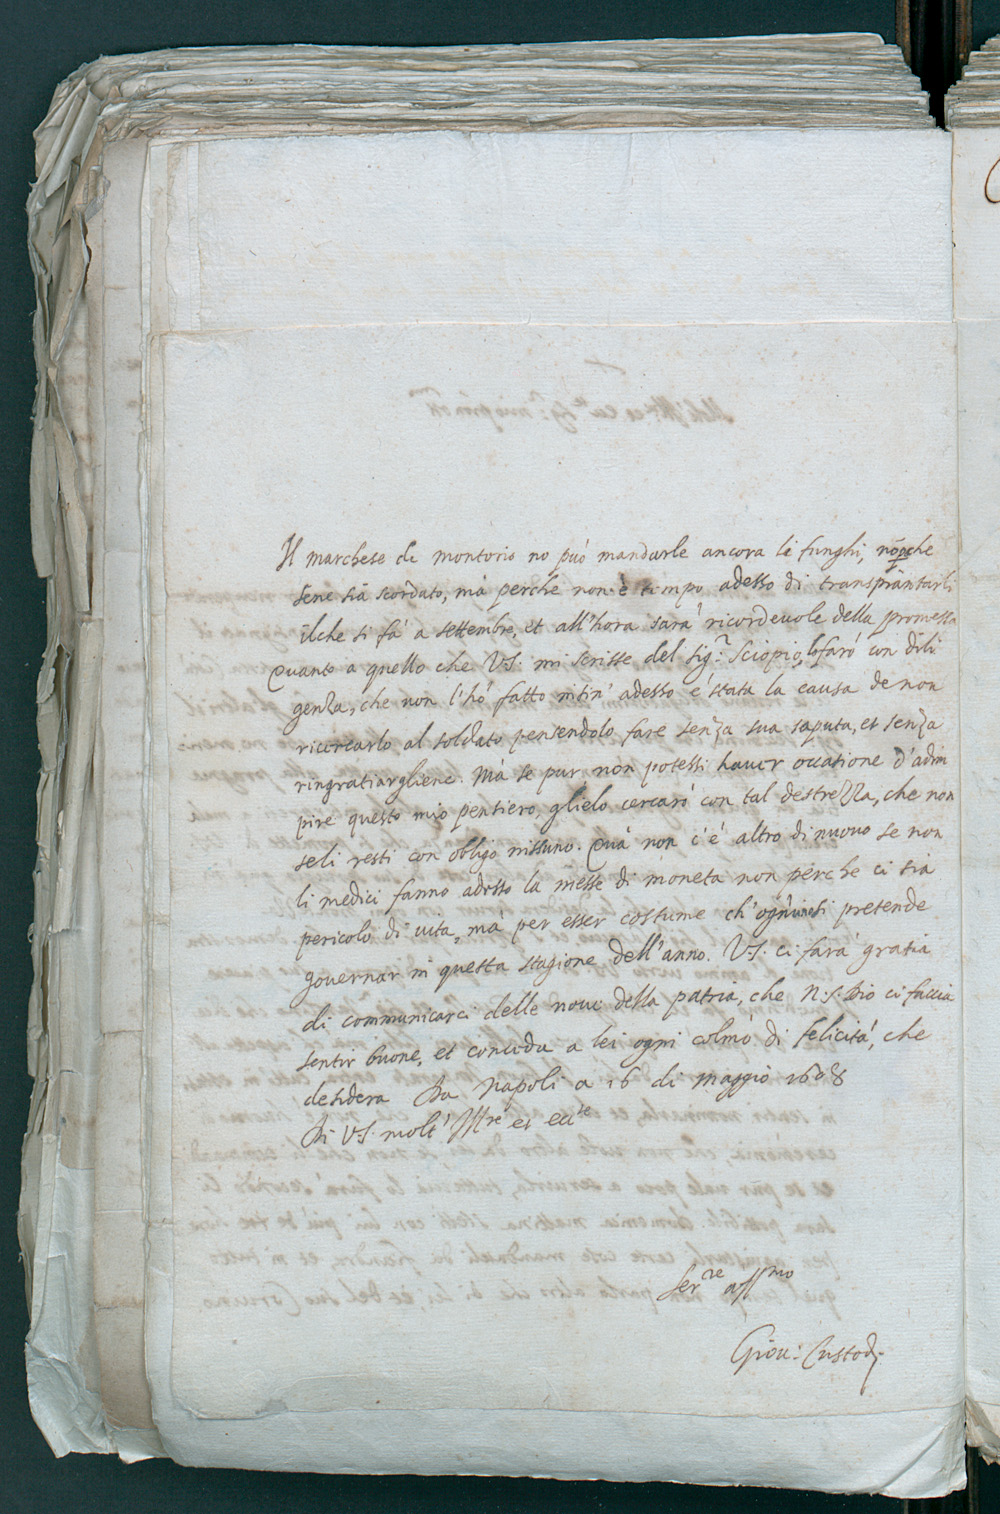 Il marchese di montorio no può mandarle ancora li funghi, nō p che
sene sia scordato, mà perche non è tempo adesso di transpiantarli
ilche si fà a settembre, et all'hora sarà ricordevole della promessa
Quanto a quello che V.S. mi scrisse del sig.r Sciopio, lo farò con dili
genza, che non l'hò fatto insin' adesso è stata la causa de non
ricercarlo al soldato pensendolo fare senza sua saputa, et senza
ringratiargliene. Mà se pur non potessi haver occasione d'adim
pire questo mio pensiero, glielo cercarò con tal destrezza, che non
seli resti con obligo nissuno. Quà non c'è altro di nuovo se non
li medici fanno adesso la messe di moneta non perche ci sia
pericolo di vita, mà per esser costume ch' ogniun si pretende
governar in questa stagione dell'anno. V.S. ci farà gratia
di communicarci delle nove della patria, che N.S. Dio ci faccia
sentir buone, et conceda a lei ogni colmo di felicità, che
desidera Da Napoli a 16 di maggio 1608
Di V.S. molt' Ill.re et ecc.te
Ser.re aff.mo
Giov: Custodj.